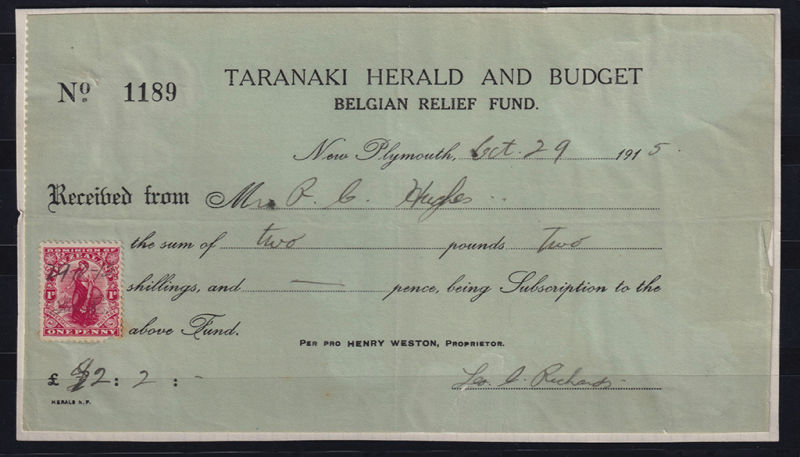 Nº 1189
TARANAKI HERALD AND BUDGET
BELGIAN RELIEF FUND.
New Plymouth, Oct. 29 1915.
Received from Mr P. C. Hughes
the sum of two pounds Two
shillings, and — pence, being Subscription to the
above Fund.
PER PRO HENRY WESTON, PROPRIETOR.
£ 2 : 2 : -
Leo. C. Richards
HERALD N.P.
DOMINION OF
NEW ZEALAND
1D 1D
ONE PENNY